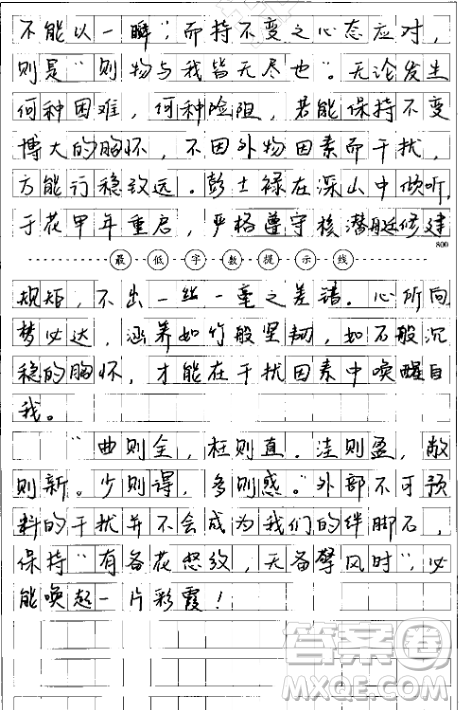 不能以一瞬"；而持不变之心态应对，
则是"则物与我皆无尽也"。无论发生
何种困难，何种险阻，若能保持不变
博大的胸怀，不因外物因素而干扰，
方能行稳致远。彭士禄在深山中倾听，
于花甲年重启，严格遵守核潜艇修建
800
最低字数提示线
规矩，不出一丝一毫之差错。心所向
梦必达，涵养如竹般坚韧，如石般沉
稳的胸怀，才能在干扰因素中唤醒自
我。
"曲则全，枉则直。洼则盈，敝
则新。少则得，多则惑。"外部不可预
料的干扰并不会成为我们的绊脚石，
保持"有备花怒放，无备孽风时"，必
能唤起一片彩霞！
答案卷
MXQE.COM